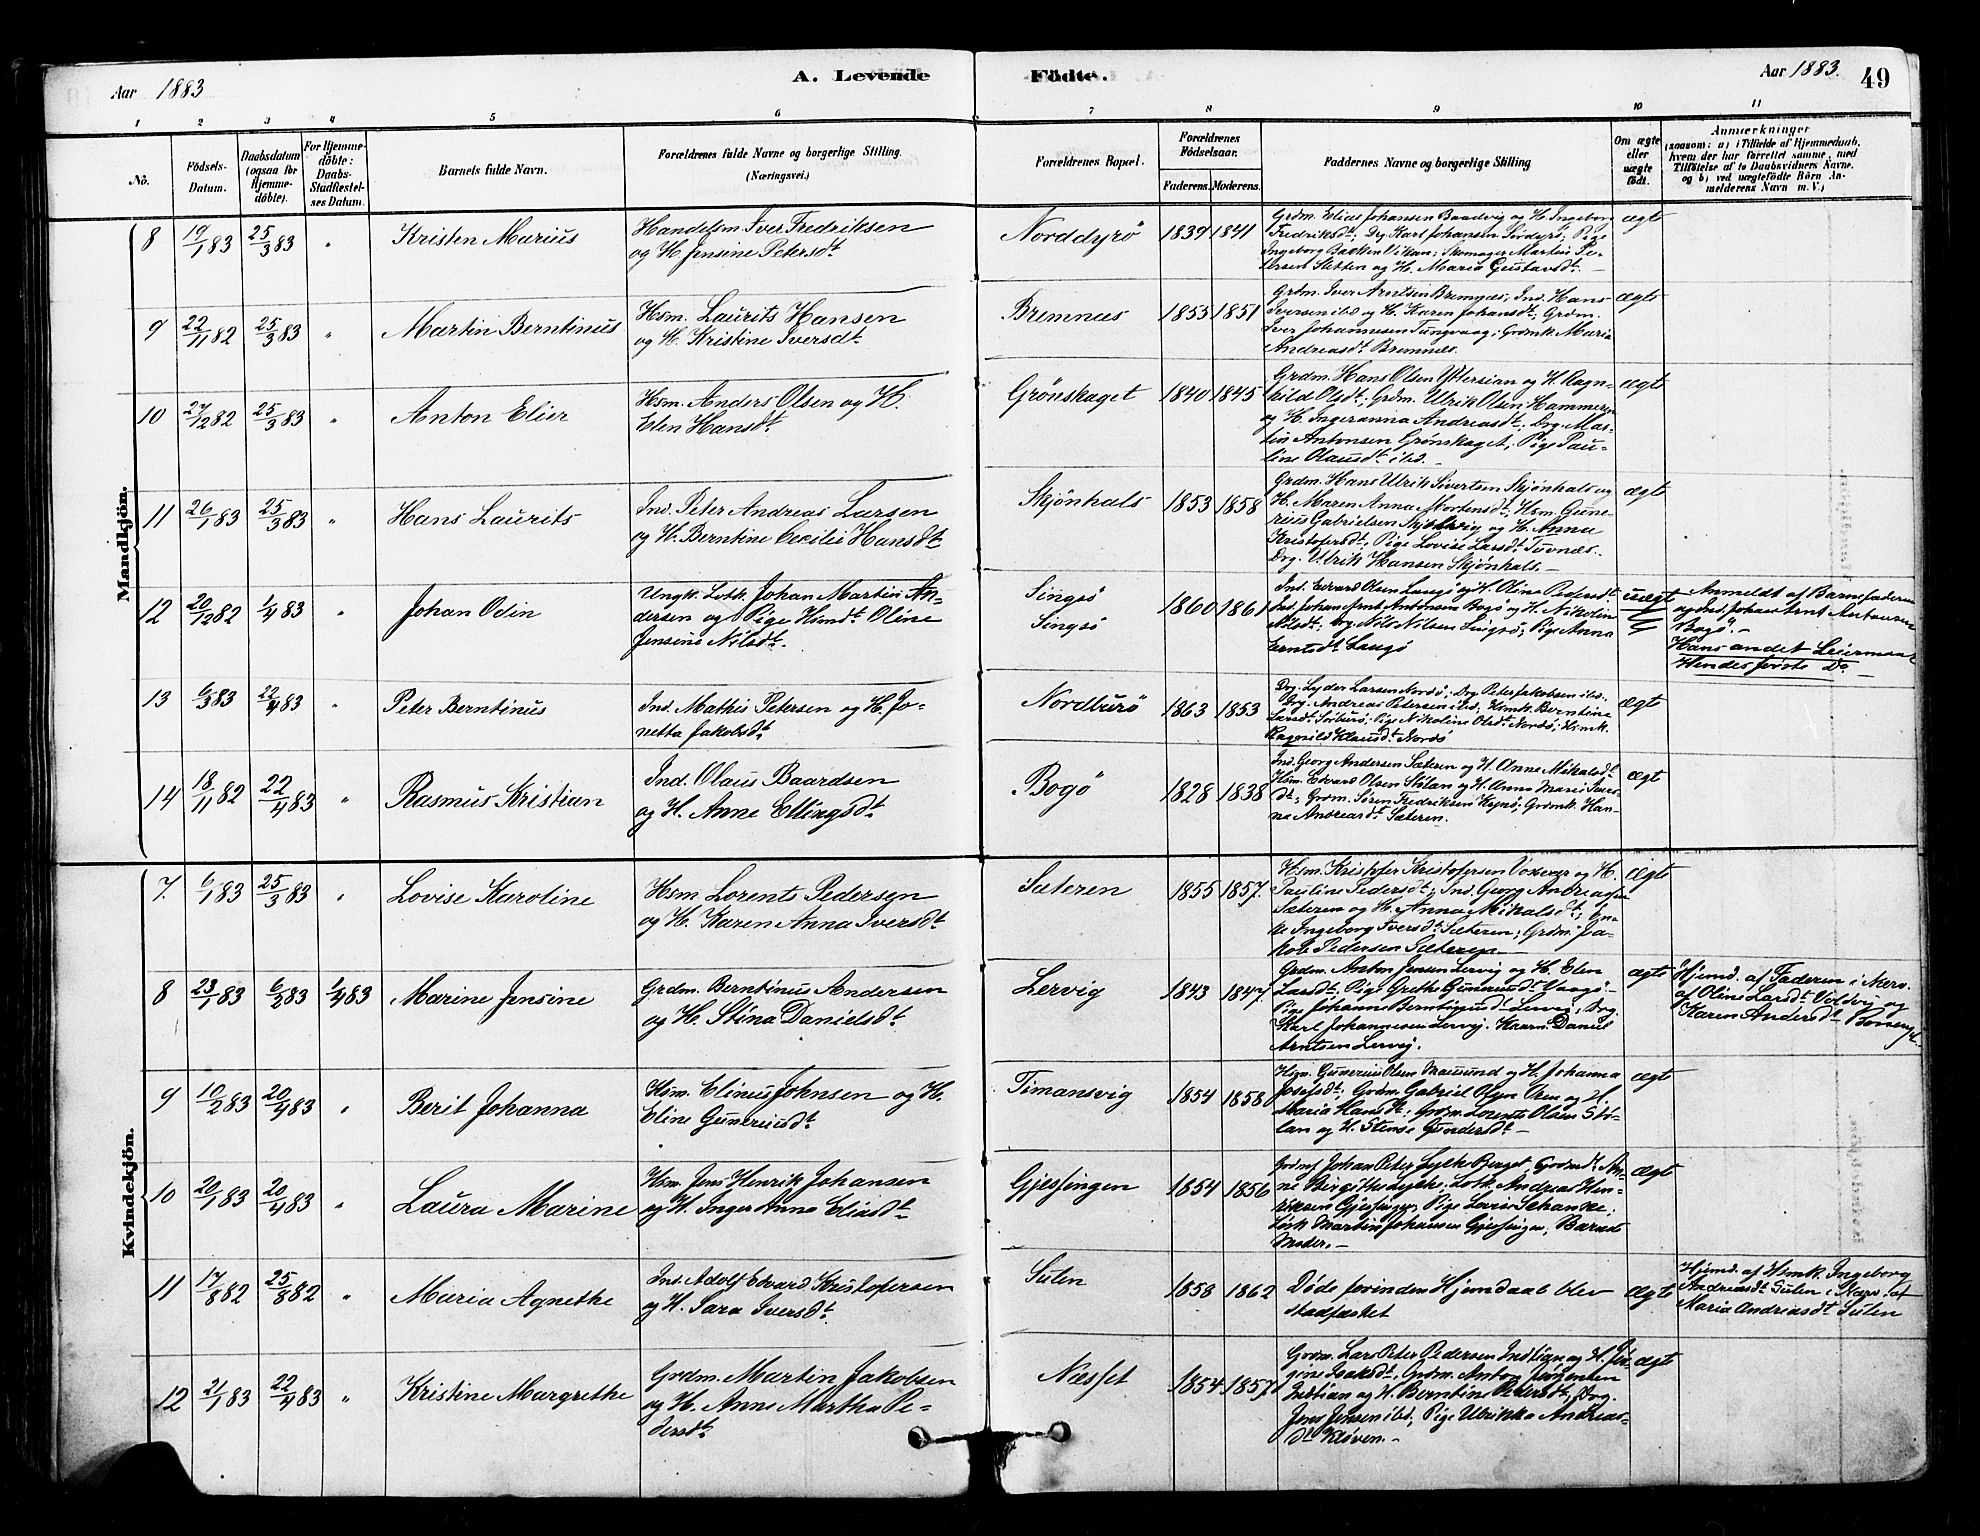 Aar 1883
A. Levende Födte.
Aar 1883. 49
1 2 3 4 5 6 7 8 9 10 11
No.
Födsels-Datum.
Daabsdatum (ogsaa for Hjemmedöbte).
For Hjemmedöbte: Daabs-Stadfestelses Datum.
Barnets fulde Navn.
Forældrenes fulde Navne og borgerlige Stilling. (Næringsvei.)
Forældrenes Bopæl.
Forældrenes Födselsaar.
Faderens. Moderens.
Faddernes Navne og borgerlige Stilling
Om ægte eller uægte födt.
Anmærkninger (saasom: a) i Tilfælde af Hjemmedaab, hvem der har forrettet samme, med Tilföielse af to Daabsvidners Navne, og b) ved uægtefödte Börn Anmelderens Navn m. V.)
Mandkjön.
8 19/1 83 25/3 83 " Kristen Marius
Handelsm. Iver Fredriksen
og H. Jensine Petersdt.
Norddyrö 1839 1841
Grdm. Elias Johansen Baadvig og H. Ingeborg
Fredriksdt; Drg. Karl Johansen Sördyrö; Pige
Ingeborg Bakken Vikan; Skomager Martin Pe-
tersen Sletten og H. Maria Gustavsdt. —
ægte
9 22/11 82 25/3 83 " Martin Berntinus
Hsm. Laurits Hansen
og H. Kristine Iversdt.
Bremnæs 1855 1851
Grdm. Iver Arntsen Bremnæs; Ind. Hans
Iversen ibd og H. Karen Johansdt; Grdm.
Iver Johannesen Tungvaag; Grdmk. Maria
Andreasdt. Bremnæs.
ægte
10 27/12 82 25/3 83 " Anton Elier
Hsm. Anders Olsen og H.
Elen Hansdt.
Grönskaget 1840 1845
Grdm. Hans Olsen Yttersian og H. Ragn-
hild Olsdt; Grdm. Ulrik Olsen Hammeren
og H. Ingeranna Andreasdt; Drg. Mar-
tin Antonsen Grönskaget; Pige Pau-
line Olausdt. ibd. —
ægte
11 26/1 83 25/3 83 " Hans Laurits
Ind. Peter Andreas Larsen
og H. Berntine Cecilie Hansdt.
Skjönhals 1853 1858
Grdm. Hans Ulrik Sivertsen Skjönhals og
H. Maren Anna Mortensdt; Hsm. Gune-
rius Gabrielsen og H. Anna
Kristofersdt; Pige Lovise Larsdt. Tuvnæs.
Drg. Ulrik Hansen Skjönhals. —
ægte
12 20/12 82 1/4 83 " Johan Odin
Ungk. Lotk. Johan Martin An-
dersen og Pige Hsmdt. Oline
Jensine Nilsdt.
Singsö
Singsö
1860 1861
Ind. Edvard Olsen Langö og H. Oline Pedersdt.
Ind. Johan Arnt Antonsen Bogö og H. Nikoline
Nilsdt; Drg. Nils Nilsen Singsö; Pige Anna
Langö
uægte
Anmeldt af Barnefaderen
og Ind. Johan Arnt Antonsen
Bogö. —
Hans andet Leiermaal
Hendes förste Do. —
13 6/3 83 22/4 83 " Peter Berntinus
Ind. Mathis Petersen og H. Jo-
netta Jakobsdt.
Nordburö 1863 1853
Drg. Lyder Larsen Nordö; Drg. Peter Jakobsen ibd.
Drg. Andreas Petersen ibd; Hsmk. Berntine
Larsdt. Sörburö; Pige Nikoline Olsdt. Nordö; Hsmk.
Ragnild Klausdt. Nordö
ægte
14 18/11 82 22/4 83 " Rasmus Kristian
Ind. Olaus Baardsen
og H. Anne Ellingsdt.
Bogö 1828 1838
Ind. Georg Andersen Sæteren og H. Anne Mikalsdt.
Hsm. Edvard Olsen Stölan og H. Anne Marie Ivers-
dt; Grdm. Sören Fredriksen; Grdmk. Han-
na Andreasdt. Sæteren.
ægt
Kvindekjön.
7. 6/1 83 25/3 83 " Lovise Karoline
Hsm. Lorents Pedersen
og H. Karen Anna Iversdt.
Sæteren 1855 1857.
Hsm. Kristofer Kristofersen og H.
Pauline Pedersdt; Ind. Georg Andreassen
Sæteren og H. Anna Mikalsdt; En-
ke Ingeborg Iversdt. Sæteren; Grdm. Ja-
kob Pedersen Sæteren
ægte
8 23/1 83 6/2 83 1/4 83 Marine Jensine
Grdm. Berntinus Andersen
og H. Stina Danielsdt.
Lervig 1843 1847.
Grdm. Anton Jensen Lervig og H. Elen
Larsdt; Pige Grethe Guneriusdt. Vaagö. —
Pige Johanne Berntinusdt. Lervig; Drg.
Karl Johannesen Lervig. Kaarm. Daniel
Arntsen Lervig.
ægte
Hjemd. af Faderen i Nærv.
af Oline Larsdt. Voldvig og
Karen Andersdt.
9 10/2 83 20/4 83 " Berit Johanna
Hsm. Elinus Johnsen og H.
Eline Guneriusdt.
Timansvig 1854 1858
Hsm. Gunerius Olsen Mausund og H. Johanna
Josefsdt; Grdm. Gabriel Olsen og H.
Maria Hansdt; Grdm. Lorents Olsen Stö-
lan og H. Stense Gundersdt. —
ægt
10 20/1 83 20/4 83 " Laura Marine
Hsm. Jens Henrik Johansen
og H. Inger Anna Eliasdt.
Gjessingen 1854 1856
Grdm. Johan Peter Lykke Berget; Grdmdt. An-
ne Birgithe Lykke; Lotk. Andreas Hen-
riksen Gjessingen; Pige Lovise Schancke;
Lotk. Martin Johansen Gjessingen; Barnets
Moder. —
ægt
11 17/8 82 25/8 82 " Maria Agnethe
Ind. Adolf Edvard Kristofersen
og H. Sara Iversdt.
Sulen 1858 1862
Döde forinden Hjemdaab blev
stadfæstet
ægte
Hjemd. af Hsmk. Ingeborg
Andreasdt. Sulen i Nærv. af
Maria Andreasdt. Sulen
12 21/1 83 22/4 83 " Kristine Margrethe
Grdm. Martin Jakobsen
og H. Anne Martha Pe-
dersdt.
Næsset 1854. 1857
Grdm. Lars Peter Pedersen Indtian og H. Jör-
gine Isaksdt; Grdm. Anton Jörgensen
Indtian og H. Berntine Pedersdt; Drg.
Jens Jensen ibd; Pige Ulrikka Andreas-
dt. Klöven. —
ægt